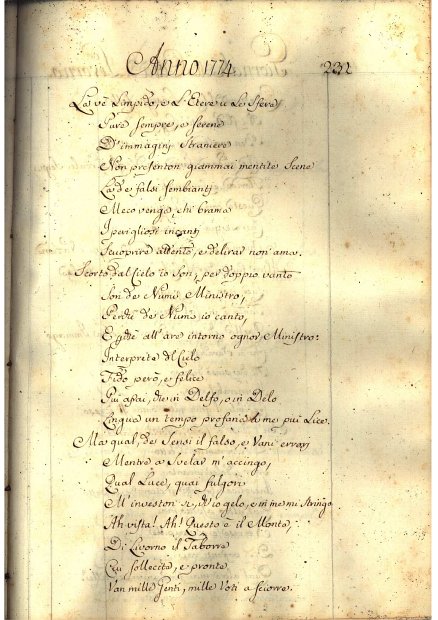 Anno 1774.
232
Là v'è Limpido, e L'Etere u Le Sfere
Pure sempre, e serene
D'immagini Straniere
Non presenton giammai mentite Scene
Là de falsi sembianti
Meco venga, chi brama
I perigliosi incanti
Scuoprire attento, e delirar non ama.
Scorto dal Cielo io Son, per doppio vanto
Son de Numi Ministro,
Perchè de Numi io canto,
E giro all'are intorno ognor Ministro:
Interprete del Cielo
Fido però, e felice
Più assai, che in Delfo, o in Delo
Lingua un tempo profana a me più Lice.
Ma qual, de Sensi il falso, e Vani errori
Mentre a Svelar m'accingo,
Qual Luce, quai fulgori
M'investon sì, ch'io gelo, e in me mi Stringo
Ah vista! Ah! Questo è il Monte,
Di Livorno il Taborre
Cui sollecite, e pronte
Van mille Genti, mille Voti a Sciorre.